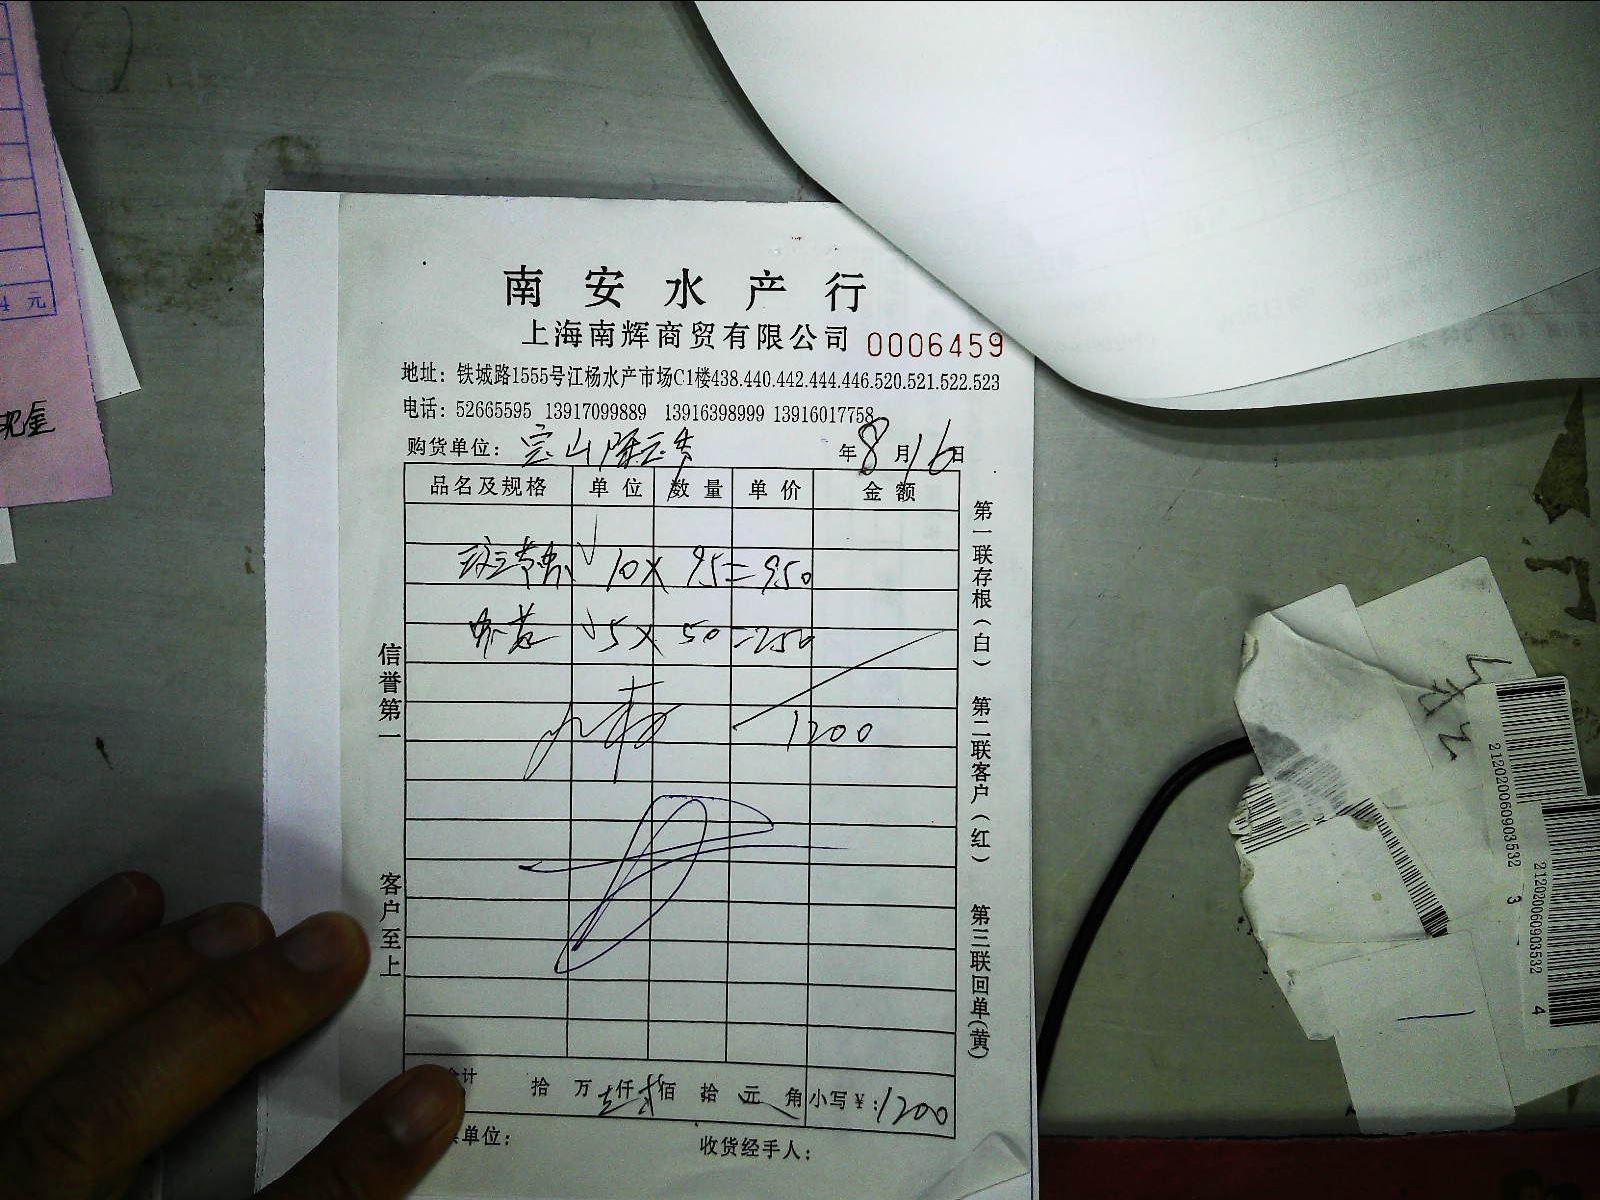 南安水产行
上海南辉商贸有限公司 0006459
地址：铁城路1555号江杨水产市场C1楼438.440.442.444.446.520.521.522.523
电话：52665595 13917099889 13916398999 13916017758
购货单位：宝山 年8月16日
品名及规格 单位 数量 单价 金额
10×95=950
5×50=250
1200
合计 拾 万 壹仟贰佰 拾 元 角 小写￥：1200
单位：
收货经手人：
信誉第一 客户至上
第一联存根(白) 第二联客户(红) 第三联回单(黄)
4 元
现金
212020060903532 3
212020060903532 4